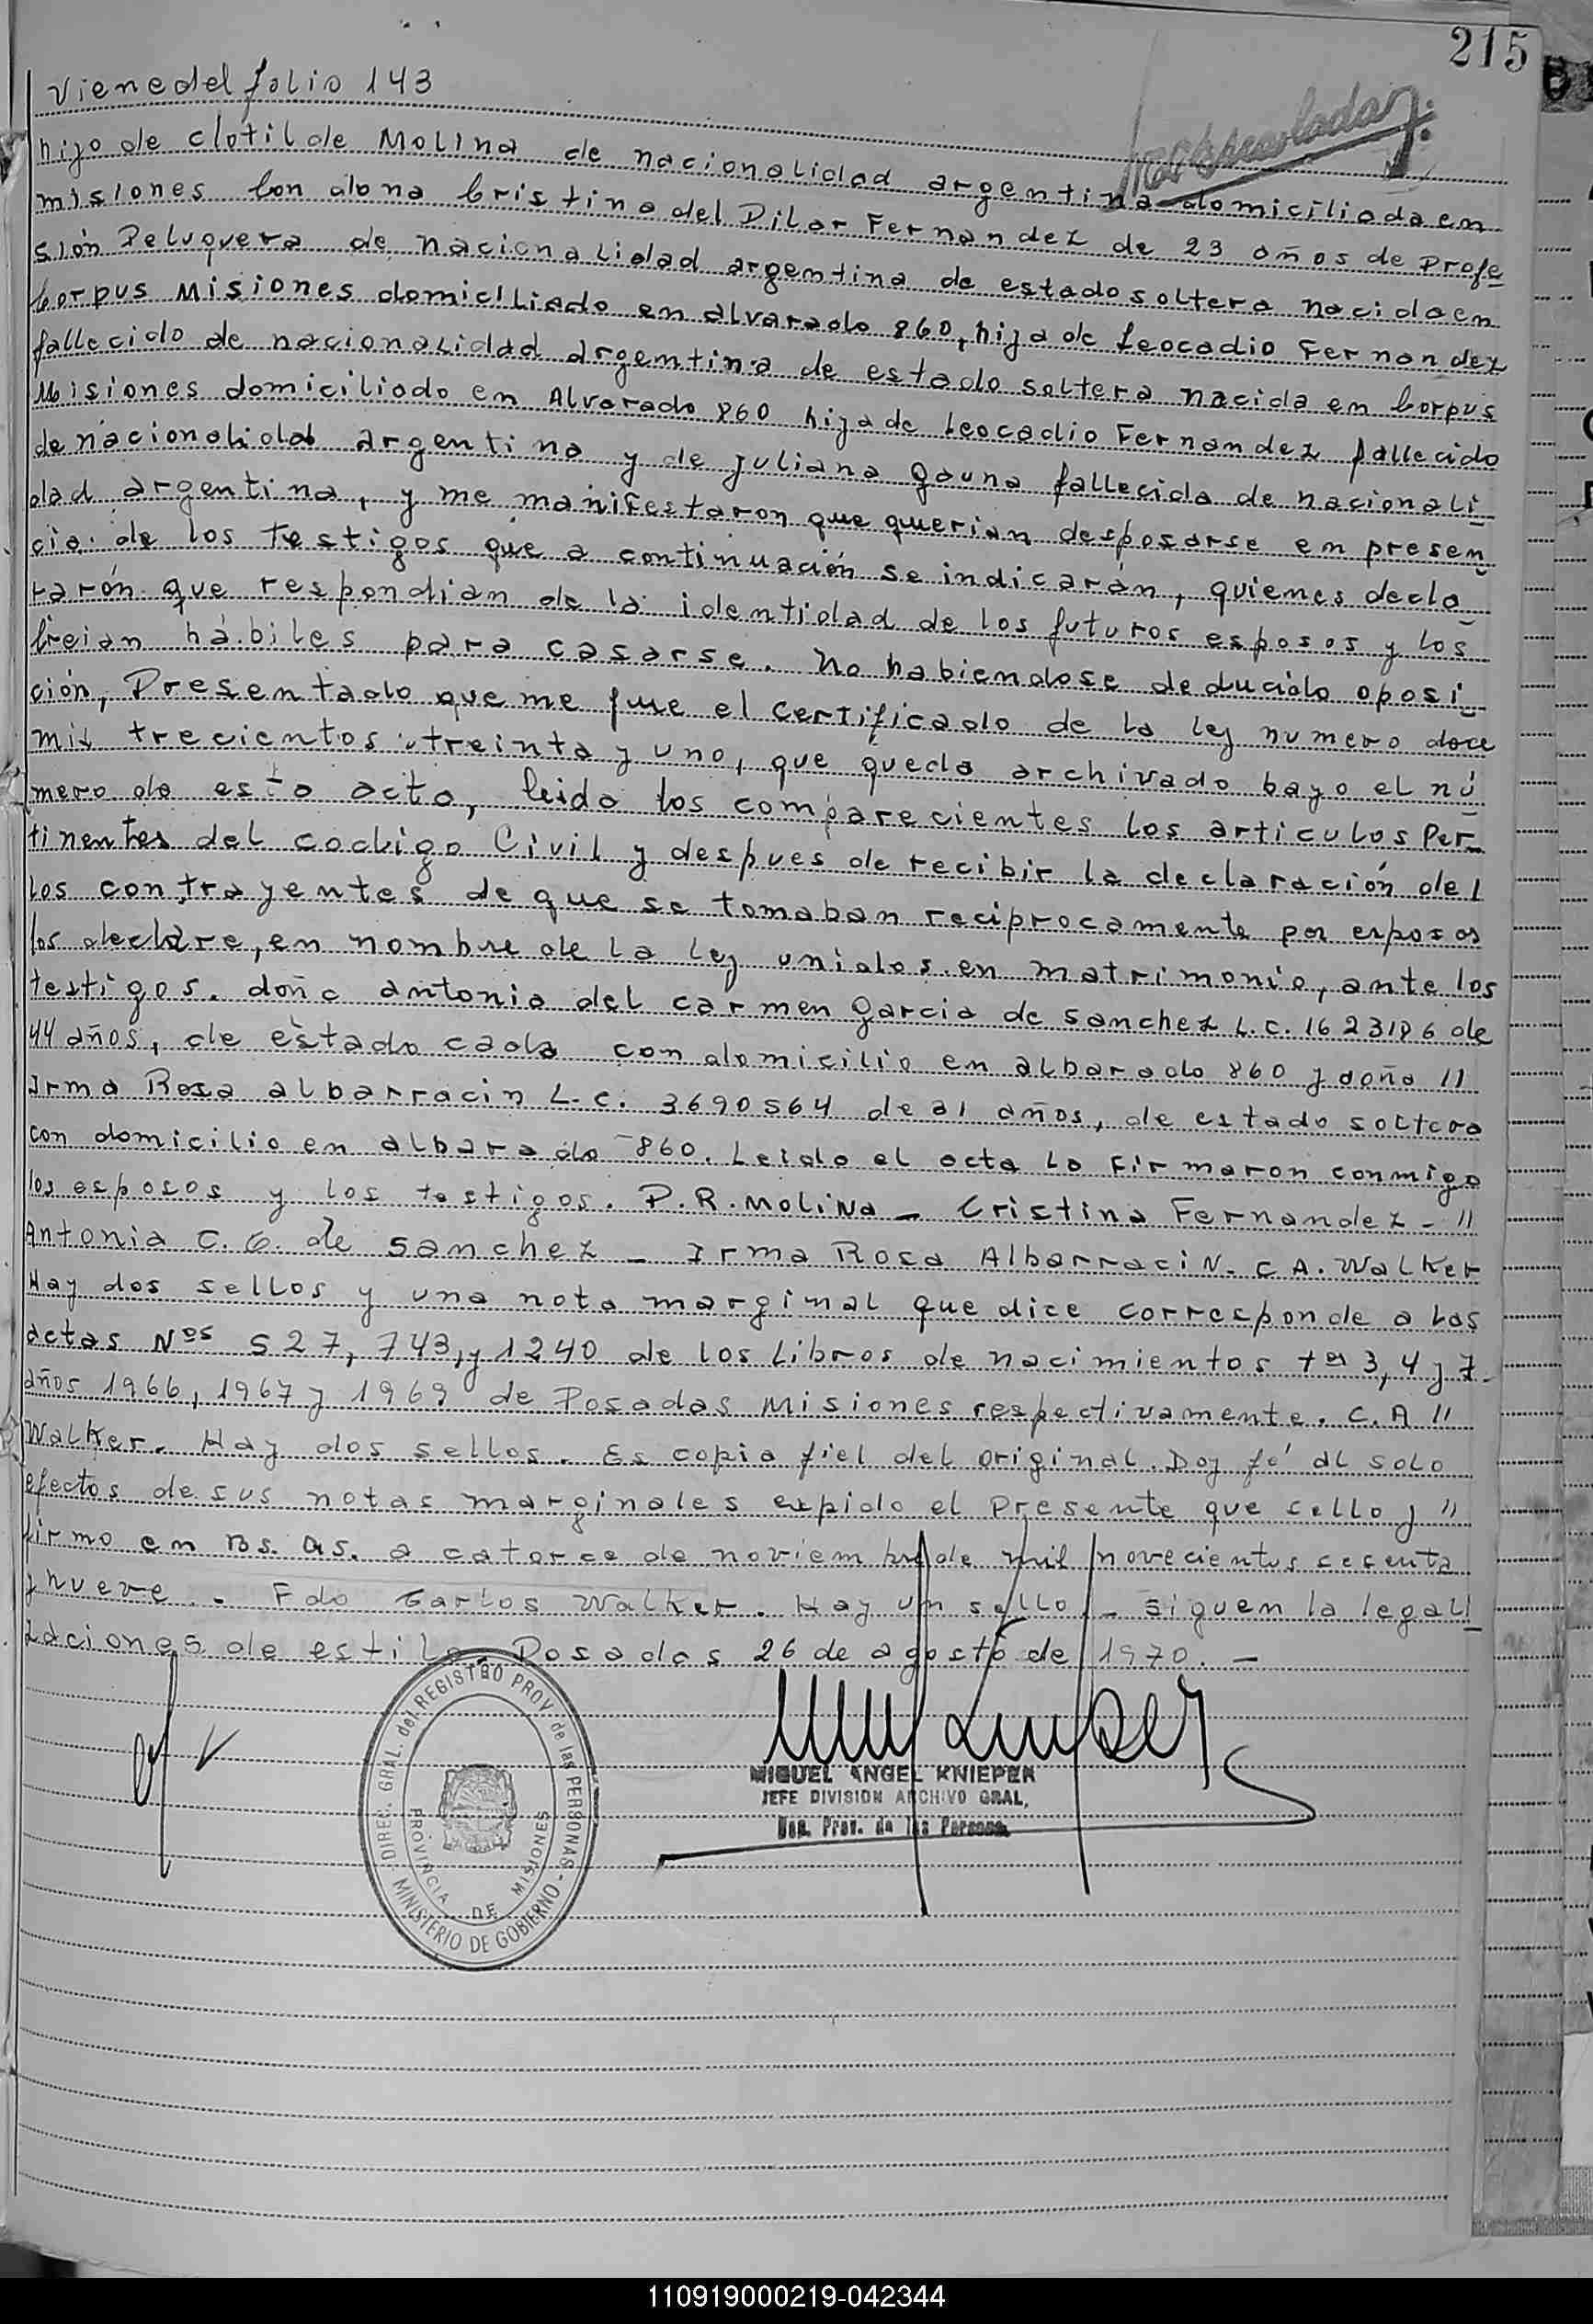 215
Viene del folio 143
hijo de Clotilde Molina de nacionalidad argentina domiciliada en
misiones Con dona Cristina del Pilar Fernandez de 23 años de Profe
sión Peluquera de nacionalidad argentina de estado soltera nacida en
Corpus Misiones domiciliado en alvarado 860, hija de Leocadio Fernandez
fallecido de nacionalidad argentina de estado soltera nacida en Corpus
Misiones domiciliado en Alvarado 860 hija de Leocadio Fernandez fallecido
de nacionalidad argentina y de Juliana Gauna fallecida de nacionali
dad argentina, y me manifestaron que querian desposarse en presen
cia de los testigos que a continuación se indicarán, quienes decla
rarón que respondian de la identidad de los futuros esposos y los
Creian hábiles para casarse. No habiendose deducido oposi
ción, Presentado que me fue el certificado de la ley numero doce
mil trecientos treinta y uno, que queda archivado bajo el nú
mero de esta acta, leido los comparecientes los articulos Per
tinentes del codigo Civil y despues de recibir la declaración de
los contrayentes de que se tomaban reciprocamente por esposos
los declare, en nombre de la ley unidos en matrimonio, ante los
testigos. doña antonia del carmen Garcia de Sanchez L.C. 1623186 de
44 años, de estado cada con domicilio en albarado 860 y doña //
Irma Rosa albarracin L.C. 3690564 de 31 años, de estado soltera
con domicilio en albarado 860. Leida el acta la Firmaron conmigo
los esposos y los testigos. P.R. Molina - Cristina Fernandez - //
Antonia C. G. de Sanchez - Irma Rosa Albarracin. C A. Walker
Hay dos sellos y una nota marginal que dice corresponde a las
actas Nos 527, 743, y 1240 de los Libros de nacimientos tos 3, 4 y 7.
años 1966, 1967 y 1969 de Posadas Misiones respectivamente. C. A //
Walker. Hay dos sellos. Es copia fiel del original. Doy fé al solo
efectos de sus notas marginales expido el Presente que sello y //
firmo en Bs. As. a catorce de noviembre de mil novecientos cecenta
y nueve. Fdo Carlos Walker. Hay un sello - siguen la legali
zaciones de estilo Posadas 26 de agosto de 1970. -
DIREC. GRAL. del REGISTRO PROV. de las PERSONAS
MINISTERIO DE GOBIERNO
PROVINCIA DE MISIONES
MIGUEL ANGEL KNIEPER
JEFE DIVISION ARCHIVO GRAL.
Reg. Prov. de las Personas
110919000219-042344